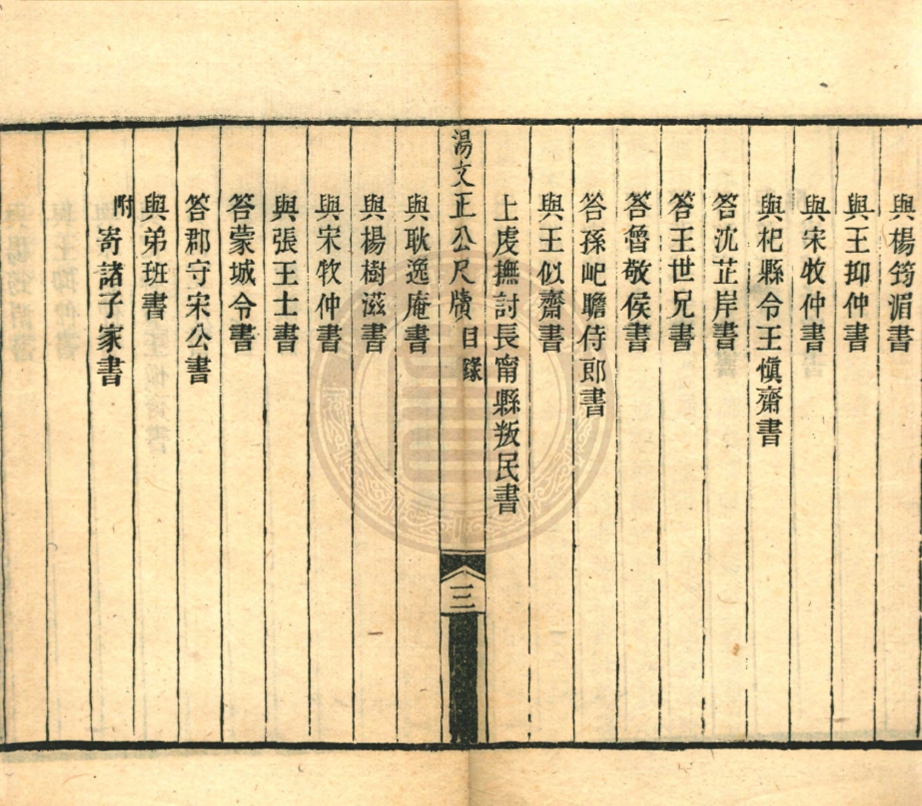 與楊筠湄書
與王抑仲書
與宋牧仲書
與杞縣令王愼齋書
答沈芷岸書
答王世兄書
答魯敬侯書
答孫屺瞻侍郎書
與王似齋書
上虔撫討長甯縣叛民書
湯文正公尺牘 目錄
三
與耿逸庵書
與楊樹滋書
與宋牧仲書
與張王士書
答蒙城令書
答郡守宋公書
與弟班書
附寄諸子家書